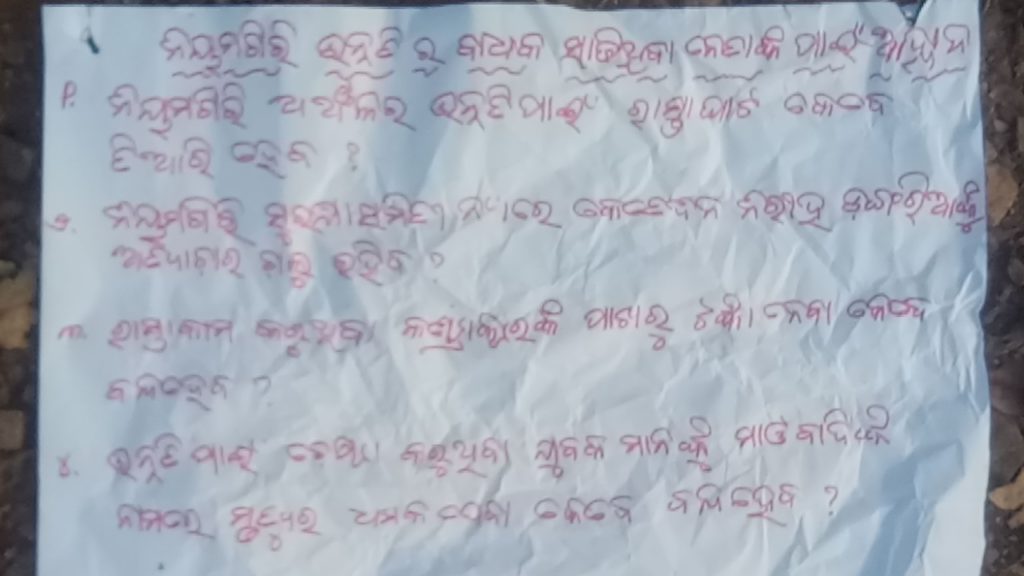 ନିୟମଗିରି ଉନ୍ନତି ର ବାଧକ ସାଜିଥିବା ନେତାଙ୍କ ପାଇଁ ଆହ୍ୱାନ
୧. ନିୟମଗିରି ଅଞ୍ଚଳର ଉନ୍ନତି ପାଇଁ ରାସ୍ତା ଘାଟ କେବେ
ତିଆରି ହେବ ?
୨. ନିୟମଗିରି ସୁରକ୍ଷା ସମିତି ନାଁରେ କେତେଦିନ ନିରୀହ ଡଙ୍ଗରିଆଙ୍କୁ
ଅତ୍ୟାଚାର ଚାଲୁ ରହିବ ?
୩. ରାସ୍ତା କାମ କରୁଥିବା କଣ୍ଟ୍ରାକ୍ଟରଙ୍କ ପାଖରୁ ଟଙ୍କା ନେବା କେବେ
ବନ୍ଦ ହେବ ?
୪. ଉନ୍ନତି ପାଇଁ ଚେଷ୍ଟା କରୁଥିବା ଯୁବକ ମାନଙ୍କୁ ମାଓବାଦୀଙ୍କ
ନାମରେ ମୃତ୍ୟୁର ଧମକ ଦେବା କେବେ ବନ୍ଦ ହେବ ?